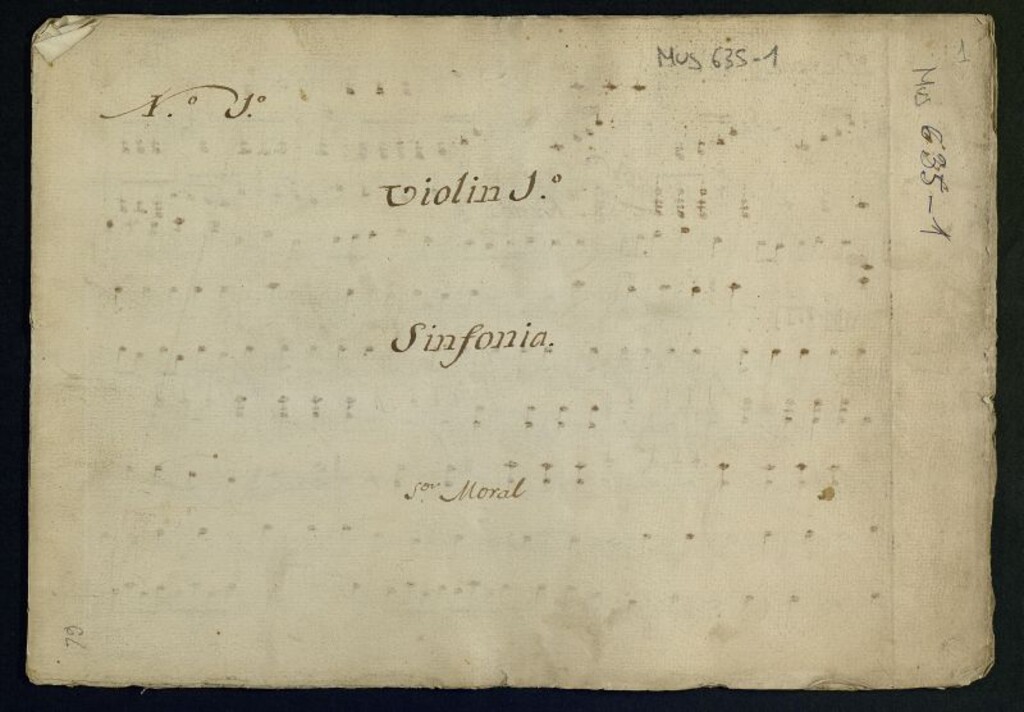 Mus 635-1
1
N.º 1.º
Mus 635-1
Violin 1.º
Sinfonia.
S.or Moral